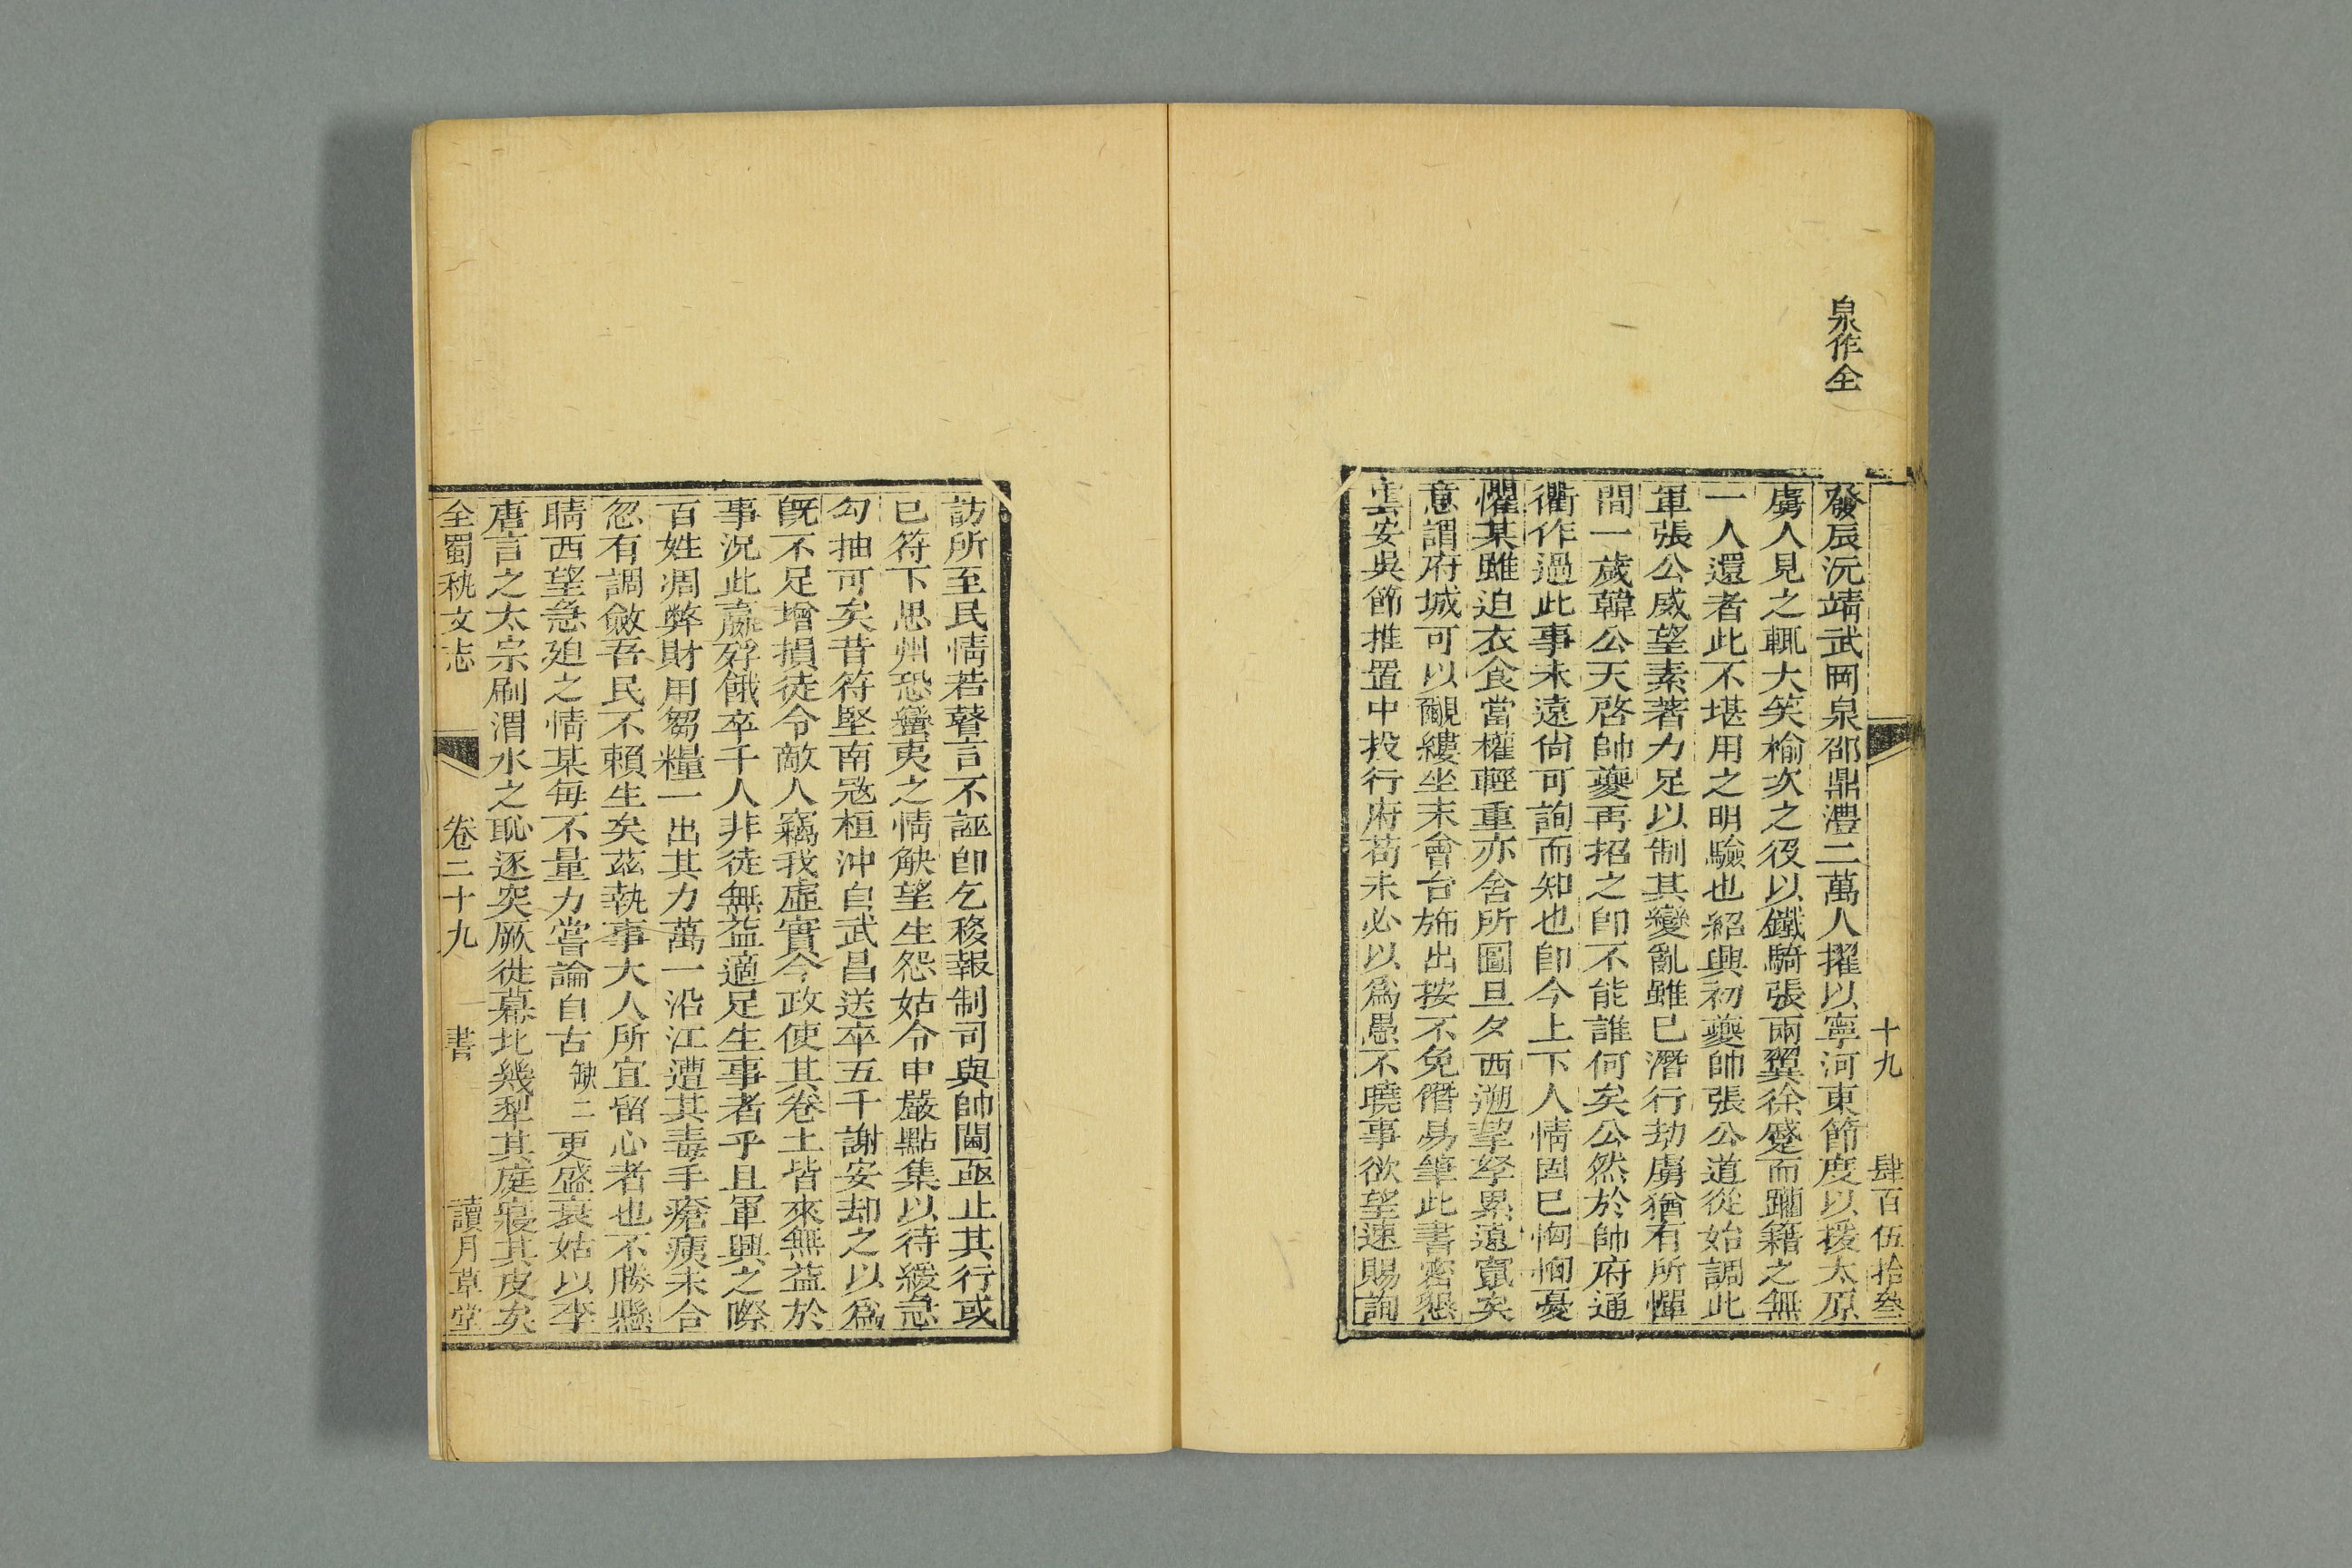 泉作全
十九 肆百伍拾叁
發辰沅靖武岡泉邵鼎澧二萬人擢以寧河東節度以援太原
虜人見之輒大笑榆次之役以鐵騎張兩翼徐蹙而躪籍之無
一人還者此不堪用之明驗也紹興初夔帥張公道從始調此
軍張公威望素著力足以制其變亂雖已潛行劫虜猶有所憚
間一歲韓公天啓帥夔再招之卽不能誰何矣公然於帥府通
衢作過此事未遠尙可詢而知也卽今上下人情固已恟恟憂
懼某雖迫衣食當權輕重亦舍所圖旦夕西遡挈孥累遠竄矣
意謂府城可以覼縷坐末會台斾出按不免僭易筆此書密懇
雲安吳節推置中投行府苟未必以爲愚不曉事欲望速賜詢
訪所至民情若聲言不誣卽乞移報制司與帥閫亟止其行或
已符下思州恐蠻夷之情觖望生怨姑令申嚴點集以待緩急
勾抽可矣昔符堅南冦桓沖自武昌送卒五千謝安却之以爲
旣不足增損徒令敵人竊我虛實今政使其卷土皆來無益於
事況此羸殍餓卒千人非徒無益適足生事者乎且軍興之際
百姓凋弊財用芻糧一出其力萬一沿江遭其毒手瘡痍未合
忽有調斂吾民不賴生矣茲執事大人所宜留心者也不勝懸
睛西望急廹之情某每不量力嘗論自古缺二更盛衰姑以李
唐言之太宗刷渭水之恥逐突厥徙幕北幾犁其庭寢其皮矣
全蜀秇文志 卷二十九 書 讀月草堂